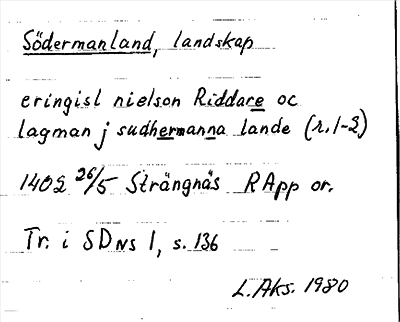 Södermanland, landskap
eringisl nielson Riddare oc
lagman j sudhermanna lande (r. 1-2)
1402 26/5 Strängnäs RApp or.
Tr. i SDNS 1, s. 136
L. Aks. 1980